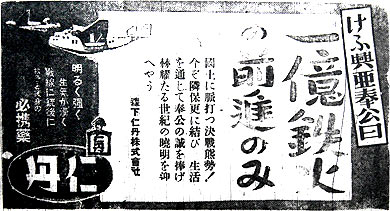 けふ興亜奉公日
一億鉄火
の前進のみ
国土に脈打つ決戦態勢!
今ぞ隣保更に結び 生活
を通して奉公の誠を捧げ
輝耀たる世紀の暁明を迎
へやう
森下仁丹株式会社
明るく強く
生気が湧く
戦線に銃後に
必携薬
仁丹